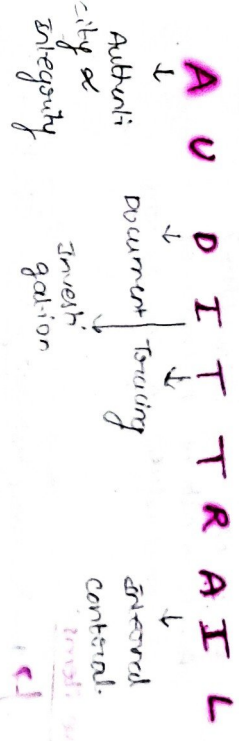 AUDIT TRAIL
Authenti
city &
Integrity
Document
Investi
gation
Tracing
Internal
control.